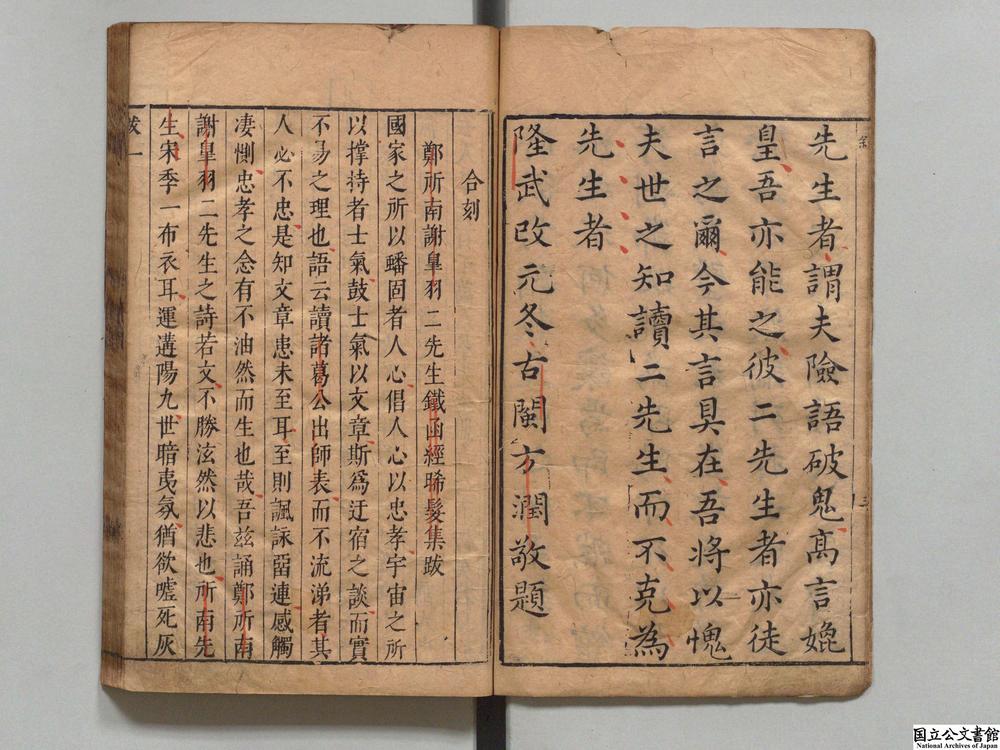 先生者謂夫險語破鬼高言媲
皇吾亦能之彼二先生者亦徒
言之爾今其言具在吾將以愧
夫世之知讀二先生而不克為
先生者
隆武改元冬古閩方潤敬題
合刻
鄭所南謝皐羽二先生鐵函經晞髮集跋
國家之所以蟠固者人心倡人心以忠孝宇宙之所
以撐持者士氣鼓士氣以文章斯爲迂宿之談而實
不易之理也語云讀諸葛公出師表而不流涕者其
人必不忠是知文章患未至耳至則諷詠畱連感觸
凄惻忠孝之念有不油然而生也哉吾兹誦鄭所南
謝皐羽二先生之詩若文不勝泫然以悲也所南先
生宋季一布衣耳運遘陽九世暗夷氛猶欲噓死灰
跋一
国立公文書館
National Archives of Japan